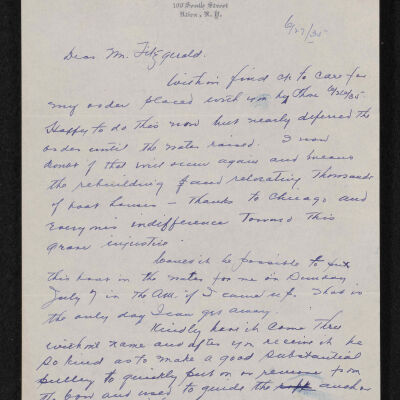 100 South Street
Utica, N.Y.
6/27/35
Dear Mr. Fitzgerald.
Within find ck to care for
my order placed with you by Phone 6/26/35
Happy to do this now but nearly deferred the
order until the water raised. I now
doubt if that will occur again and means
the rebuilding and relocating Thousands
of boat houses - thanks to Chicago and
Everyones indifference Toward this
Grave injustice.
Would it be possible to put
this boat in the water for me on Sunday
July 7 in the A.M. if I came up. That is
the only day I can get away.
Kindly have it come Thru
without name and after you receive it be
so kind as to make a good substantial
pulley to quickly put on or remove from
the bow and used to guide the anchor